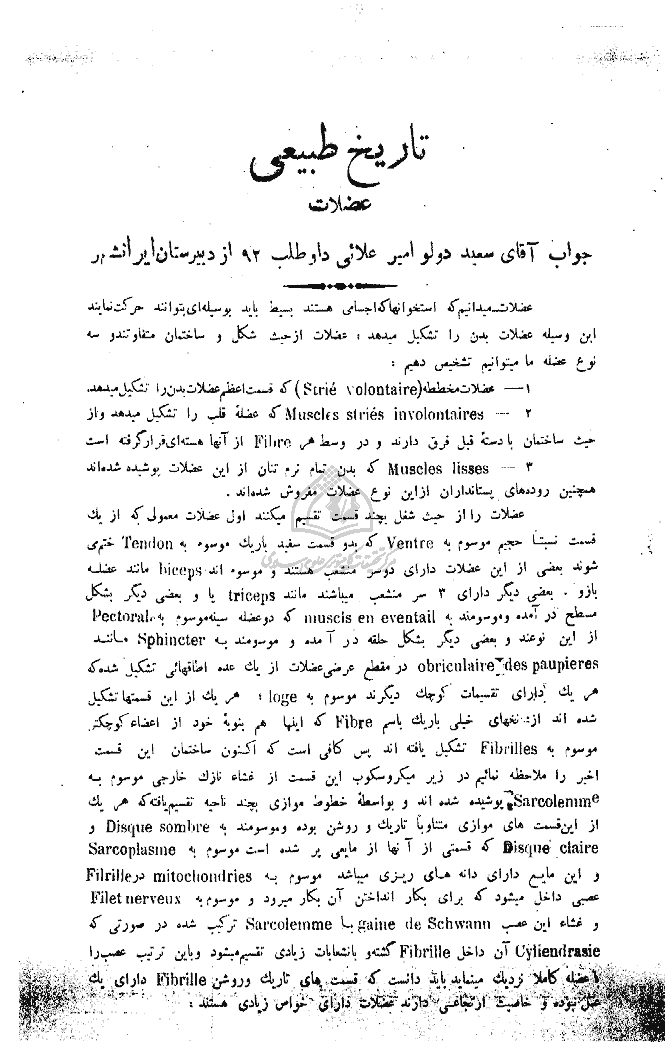 تاریخ طبیعی
عضلات
جواب آقای سعید دولو امیر علائی داوطلب ۹۲ از دبیرستان ایرانشهر
عضلات ـ میدانیم که استخوانها که اجسامی هستند بسیط باید بوسیله‌ای بتوانند حرکت نمایند
این وسیله عضلات بدن را تشکیل میدهد ؛ عضلات از حیث شکل و ساختمان متفاوتند و سه
نوع عضله ما میتوانیم تشخیص دهیم :
۱ — عضلات مخططه (Strié volontaire) که قسمت اعظم عضلات بدن را تشکیل میدهد.
۲ — Muscles striés involontaires که عضلهٔ قلب را تشکیل میدهد و از
حیث ساختمان با دستهٔ قبل فرق دارند و در وسط هر Fibre از آنها هسته‌ای قرار گرفته است
۳ — Muscles lisses که بدن تمام نرم تنان از این عضلات پوشیده شده‌اند
همچنین روده‌های پستانداران از این نوع عضلات مفروش شده‌اند .
عضلات را از حیث شغل بچند قسمت تقسیم میکنند اول عضلات معمولی که از یك
قسمت نسبتاً حجیم موسوم به Ventre که بدو قسمت سفید باریك موسوم به Tendon ختم می
شوند بعضی از این عضلات دارای دوسر منشعب هستند و موسوم اند biceps مانند عضله
بازو . بعضی دیگر دارای ۳ سر منشعب میباشند مانند triceps یا و بعضی دیگر بشکل
مسطح در آمده و موسومند به muscis en eventail که دو عضله سینه موسوم به Pectoral
از این نوعند و بعضی دیگر بشکل حلقه در آمده و موسومند به Sphincter مانند
obriculaire des paupieres در مقطع عرضی عضلات از یك عده اطاقهائی تشکیل شده که
هر یك دارای تقسیمات کوچك دیگرند موسوم به loge ؛ هر یك از این قسمتها تشکیل
شده اند از : نخهای خیلی باریك باسم Fibre که اینها هم بنوبهٔ خود از اعضاء کوچکتر
موسوم به Fibrilles تشکیل یافته اند پس کافی است که اکنون ساختمان این قسمت
اخیر را ملاحظه نمائیم در زیر میکروسکوب این قسمت از غشاء نازك خارجی موسوم به
Sarcolemme پوشیده شده اند و بواسطهٔ خطوط موازی بچند ناحیه تقسیم یافته که هر یك
از این قسمت های موازی متناوباً تاریك و روشن بوده و موسومند به Disque sombre و
Disque claire که قسمتی از آنها از مایعی پر شده است موسوم به Sarcoplasme
و این مایع دارای دانه های ریزی میباشد موسوم به mitochondries در Filrille
عصبی داخل میشود که برای بکار انداختن آن بکار میرود و موسوم به Filet nerveux
و غشاء این عصب gaine de Schwann با Sarcolemme ترکیب شده در صورتی که
Cyliendrasie آن داخل Fibrille گشته و بانشعابات زیادی تقسیم میشود و باین ترتیب عصب را
عضله کاملا نزدیك مینماید باید دانست که قسمت های تاریك و روشن Fibrille دارای یك
عمل نبوده و خاصیت ارتجاعی دارند عضلات دارای خواص زیادی هستند :